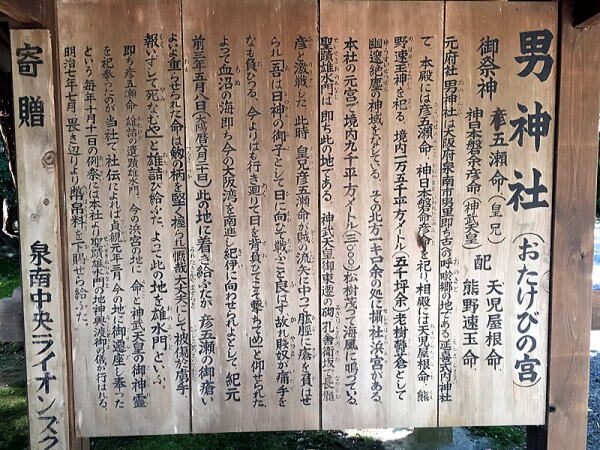 男神社（おたけびの宮）
御祭神 彦五瀬命（皇兄） 配 天児屋根命
神日本磐余彦命（神武天皇） 熊野速玉命
元府社男神社は大阪府泉南市男里即ち古への呼唹郷の地である延喜式内神社
で、本殿には彦五瀬命、神日本磐余彦命を祀り、相殿には天児屋根命、熊
野速玉神を祀る。境内一万五千平方メートル（五千坪余）老樹欝蒼として
幽邃絶塵の神域をなしている。その北方一キロ余の処に摂社浜宮がある。
本社の元宮で境内九千平方メートル（三〇〇〇）松樹茂って海風に鳴っている。
聖蹟雄水門は即ち此の地である。神武天皇御東遷の砌、孔舎衛坂で長髄
彦と激戦した。此時、皇兄彦五瀬命が賊の流矢に中って肱脛に瘡を負はせ
られ「吾は日神の御子として日に向ひて戦ふこと良はず故、賤奴が痛手を
なも負ひつる、今よりはも行き廻りて日を背負ひてこそ撃ちてめ」と仰せられた。
よって血沼の海即ち今の大阪湾を南進し紀伊に向わせられよとして、紀元
前三年五月八日（太陽暦六月二十日）此の地に着き給ふたが、彦五瀬命御瘡い
よいよ重らせられた命は剱の柄を堅く握られ「慨哉、大丈夫にして被傷於虜手、
報いずして死なむや」と雄詰び給ふた。よって此の地を雄水門といふ、
即ち彦五瀬命雄詰の遺蹟雄水門、今の浜宮の地に、命と神武天皇の御神霊
を祀奉ったのが当社で、社伝によれば貞観元年三月、今の地に御遷座し奉った
という。毎年十月十一日の例祭には本社より聖蹟雄水門の地神輿渡御の儀が行はれる。
明治七年十月、畏き辺りより、幣帛料を下賜せらる給った。
寄贈 泉南中央ライオンズク